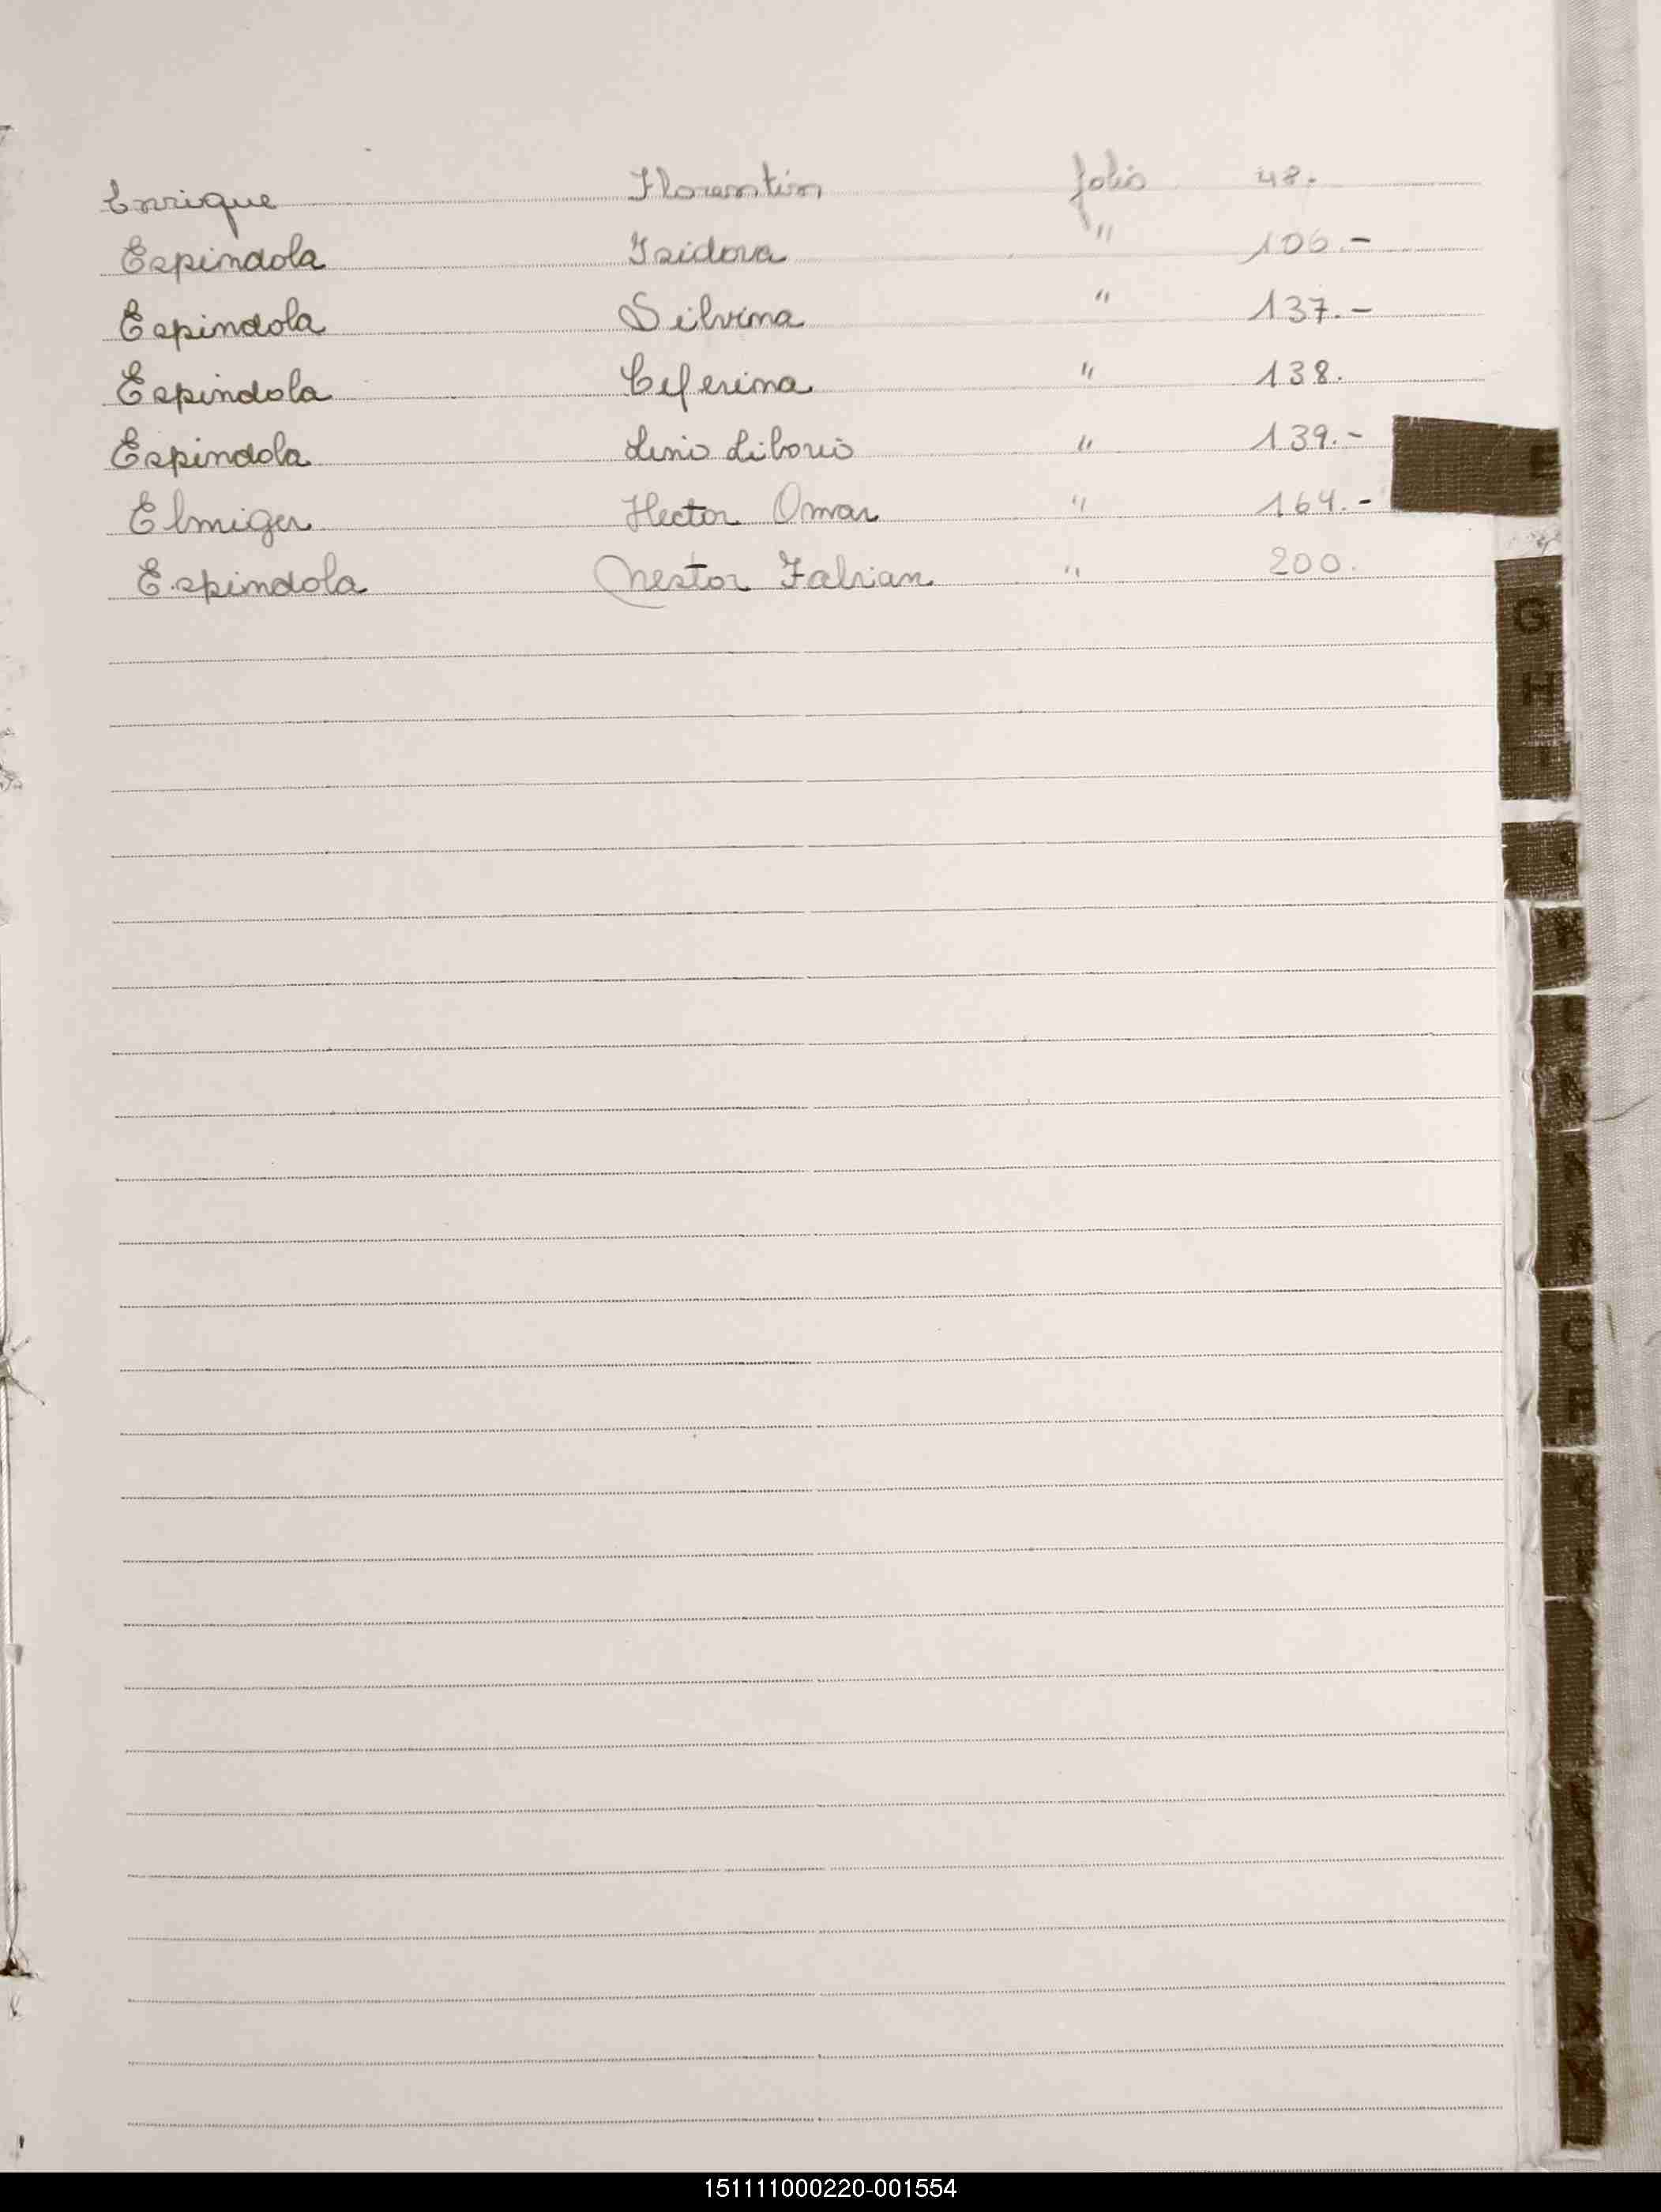 Enrique Florentin folio 48.
Espindola Isidora " 106.-
Espindola Silvina " 137.-
Espindola Ceferina " 138.
Espindola Lino Liborio " 139.-
E
Elmiger Hector Omar " 164.-
Espindola Nestor Fabian " 200.
G
H
I
151111000220-001554